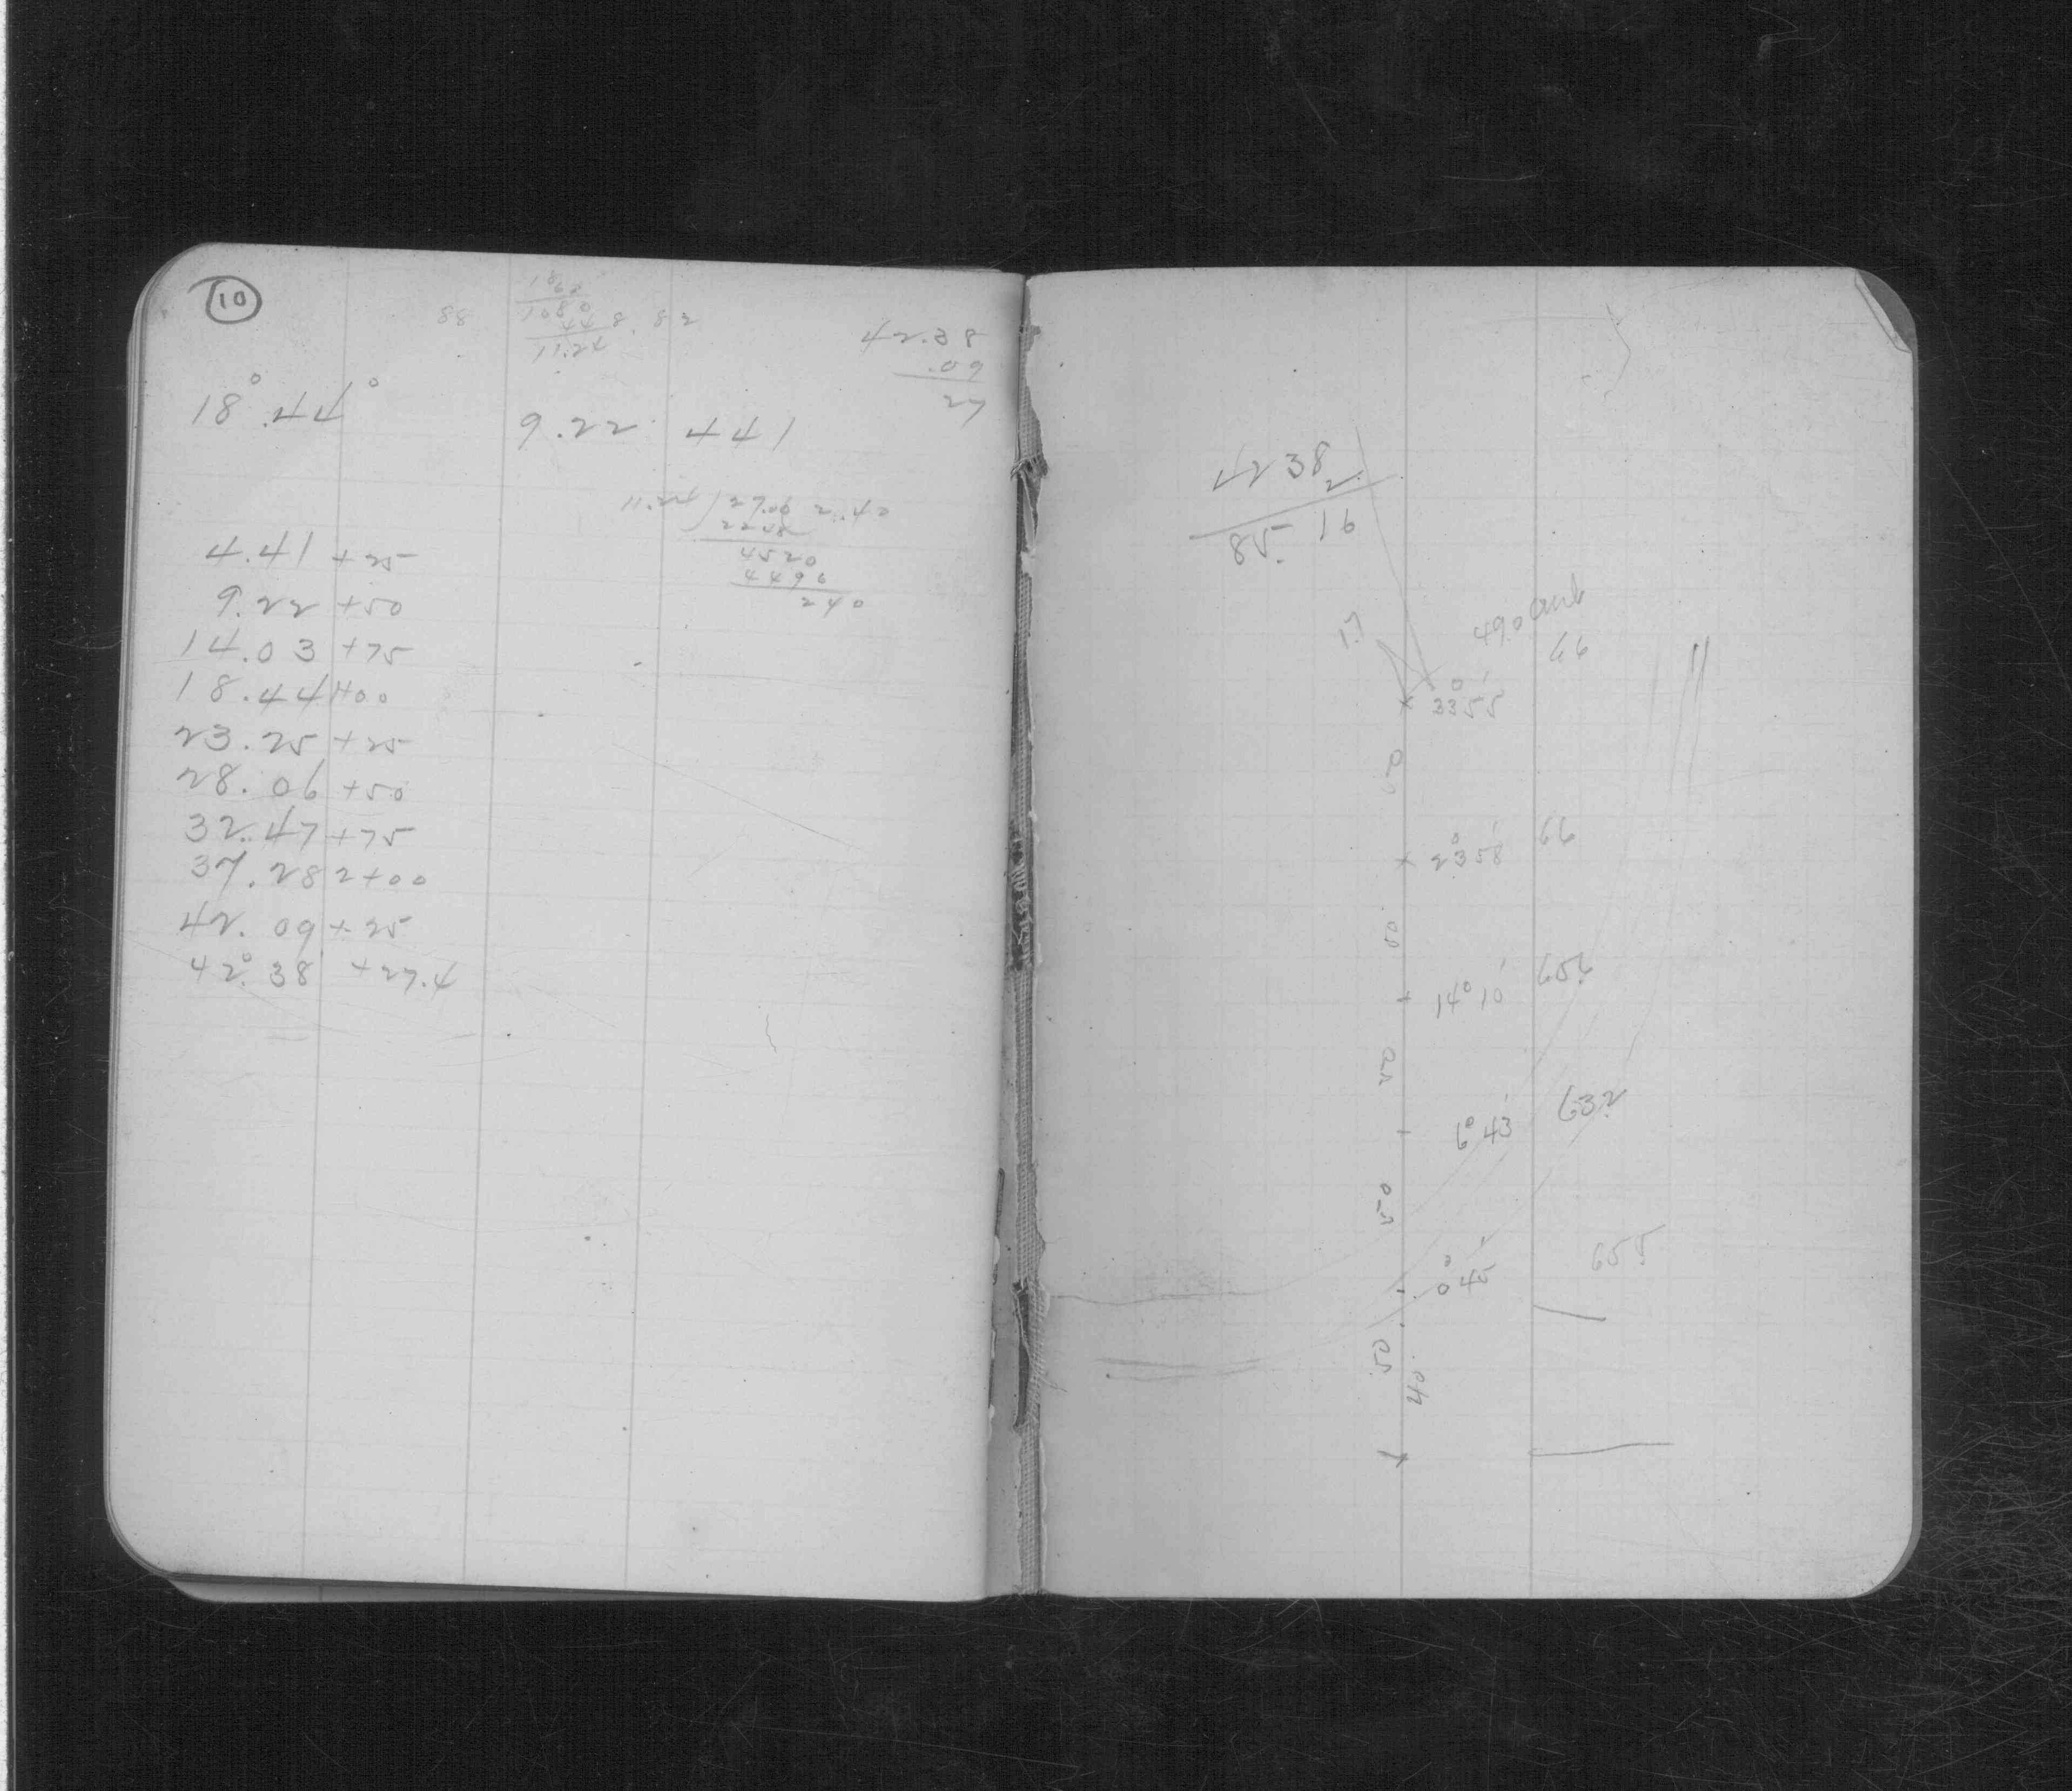 10
1080
88 44 8.82
11.24
42.38
.09
27
18° .44°
9.22 441
11.24 / 27.00 2.40
2248
4520
4496
240
4.41 + 25
9.22 + 50
14.03 + 75
18.44 1+00
23.25 + 25
28.06 + 50
32.47 + 75
37.28 2+00
42.09 + 25
42° 38 + 27.4
4238
2
85.16
17
49.0
66
33° 55'
50
23° 58' 66
50
14° 10' 656
50
6° 43' 632
50
0° 45' 655
50
40